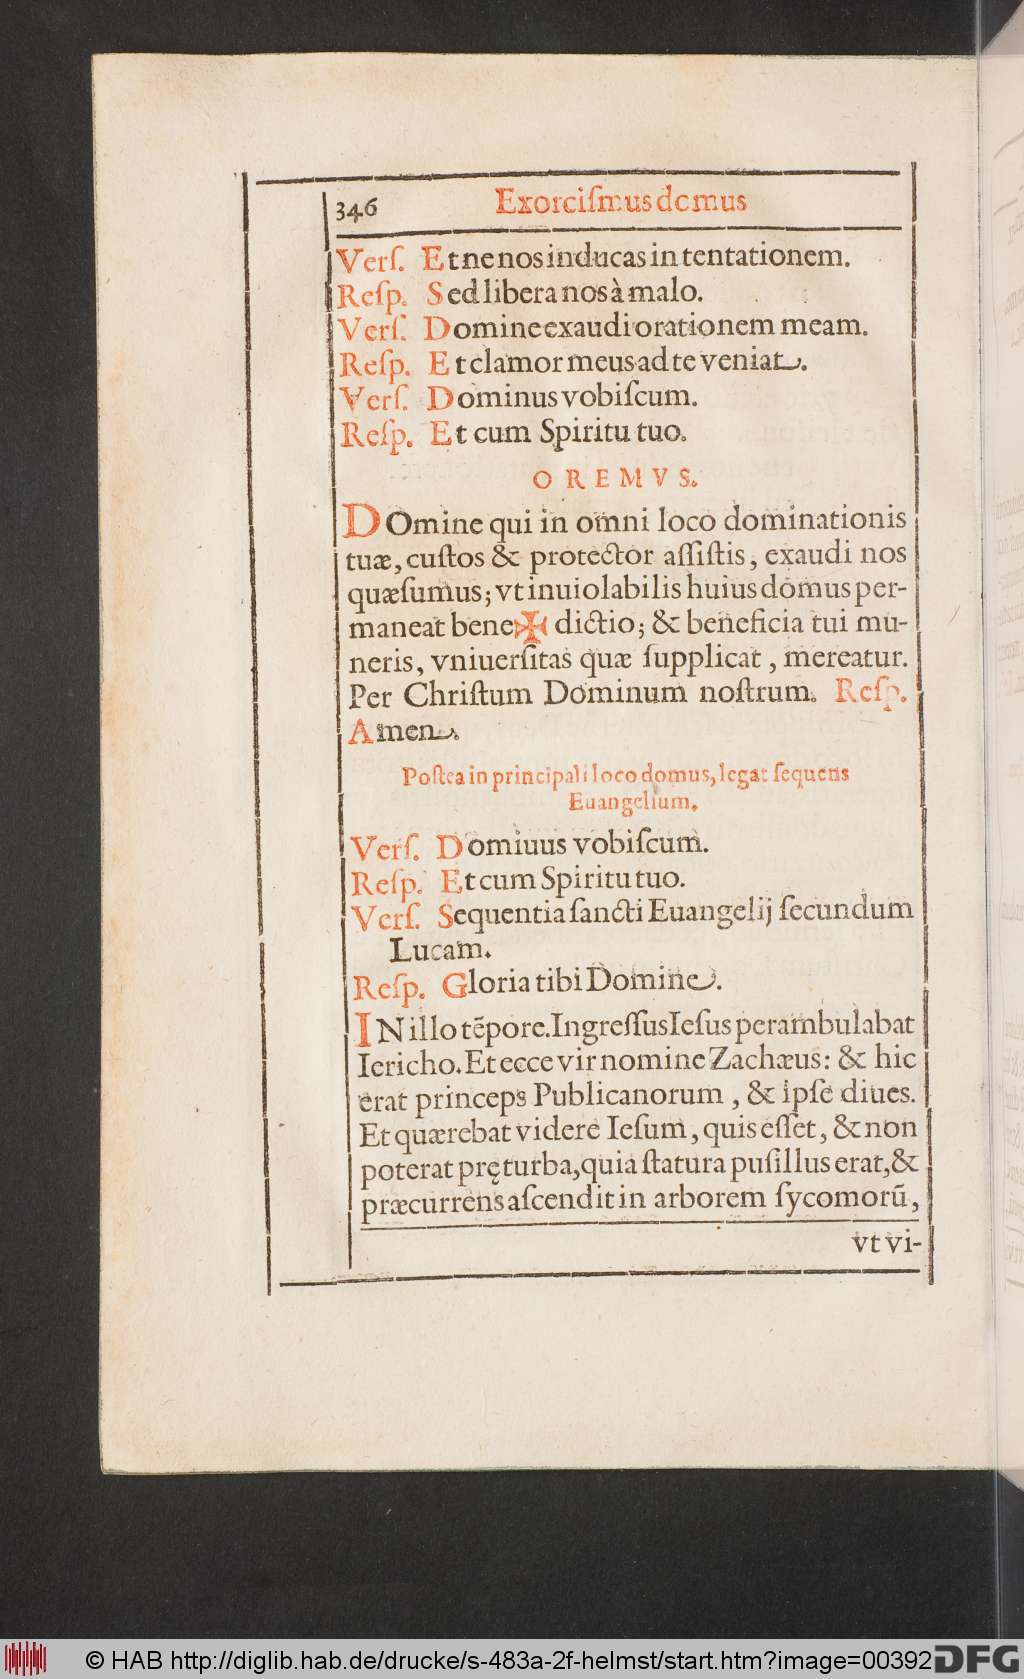 346 Exorciſmus domus
Verſ. Et ne nos inducas in tentationem.
Reſp. Sed libera nos à malo.
Verſ. Domine exaudi orationem meam.
Reſp. Et clamor meus ad te veniat.
Verſ. Dominus vobiſcum.
Reſp. Et cum Spiritu tuo.
OREMVS.
DOmine qui in omni loco dominationis
tuæ, cuſtos & protector aſſiſtis, exaudi nos
quæſumus; vt inuiolabilis huius domus per-
maneat bene✠dictio; & beneficia tui mu-
neris, vniuerſitas quæ ſupplicat, mereatur.
Per Chriſtum Dominum noſtrum. Reſp.
Amen.
Poſtea in principali loco domus, legat ſequens
Euangelium.
Verſ. Domiuus vobiſcum.
Reſp. Et cum Spiritu tuo.
Verſ. Sequentia ſancti Euangelij ſecundum
Lucam.
Reſp. Gloria tibi Domine.
IN illo tẽpore. Ingreſſus Ieſus perambulabat
Iericho. Et ecce vir nomine Zachæus: & hic
erat princeps Publicanorum, & ipſe diues.
Et quærebat videre Ieſum, quis eſſet, & non
poterat pręturba, quia ſtatura puſillus erat, &
præcurrens aſcendit in arborem ſycomorũ,
vt vi-
© HAB http://diglib.hab.de/drucke/s-483a-2f-helmst/start.htm?image=00392 DFG